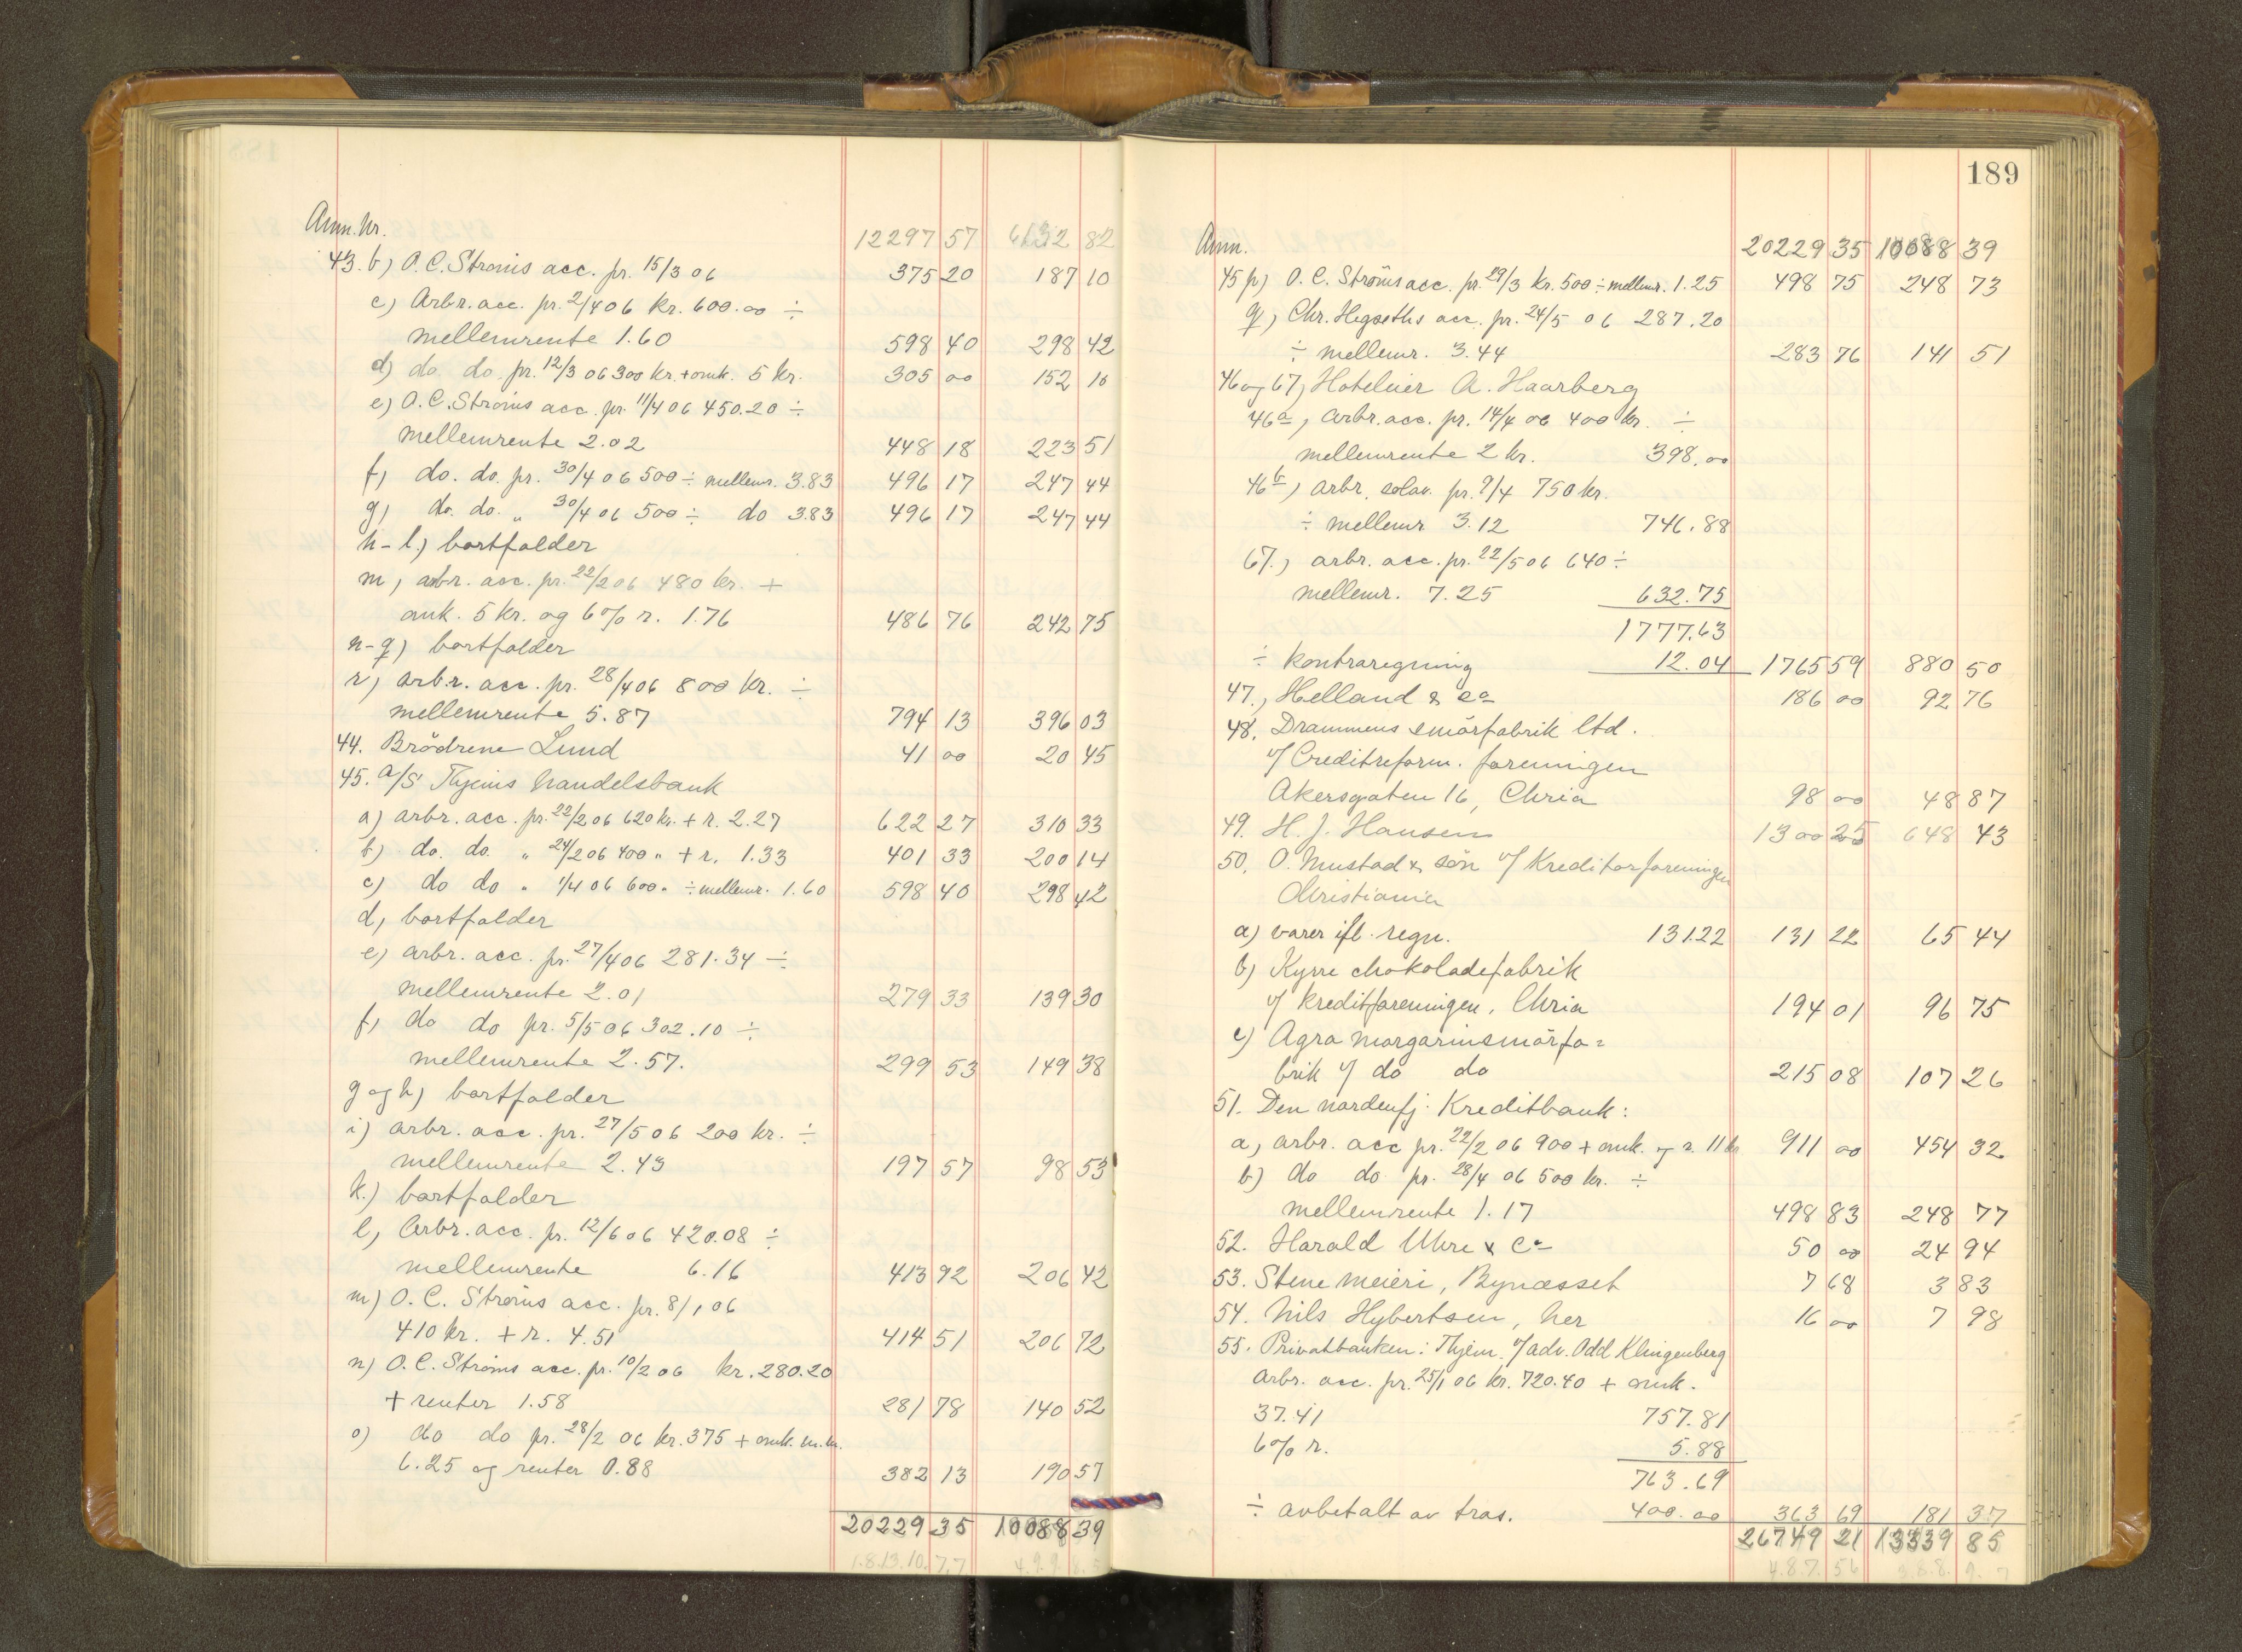 Anm. Nr.
12297 57 6132 82
43. b) O.C. Strøms acc. pr. 15/3 06 375 20 187 10
c) Arbr. acc. pr. 2/4 06 kr. 600.00 ÷
mellemrente 1.60 598 40 298 42
d) do. do. pr. 12/3 06 300 kr. + omk. 5 kr. 305 00 152 10
e) O.C. Strøms acc. pr. 11/4 06 450.20 ÷
mellemrente 2.02 448 18 223 51
f) do. do. pr. 30/4 06 500 ÷ mellemr. 3.83 496 17 247 44
g) do. do. „ 30/4 06 500 ÷ do 3.83 496 17 247 44
h-l.) bortfalder
m) arbr. acc. pr. 22/2 06 480 kr. +
omk. 5 kr. og 6% r. 1.76 486 76 242 75
n-q) bortfalder
r) arbr. acc. pr. 28/4 06 800 kr. ÷
mellemrente 5.87 794 13 396 03
44. Brødrene Lund 41 00 20 45
45. A/S Thjems handelsbank
a) arbr. acc. pr. 22/2 06 620 kr. + r. 2.27 622 27 310 33
b) do. do. „ 24/2 06 400 „ + r. 1.33 401 33 200 14
c) do do „ 1/4 06 600 „ ÷ mellemr. 1.60 598 40 298 42
d) bortfalder
e) arbr. acc. pr. 27/4 06 281.34 ÷
mellemrente 2.01 279 33 139 30
f) do do pr. 5/5 06 302.10 ÷
mellemrente 2.57. 299 53 149 38
g og h) bortfalder
i) arbr. acc. pr. 27/5 06 200 kr. ÷
mellemrente 2.43 197 57 98 53
k.) bortfalder
l) Arbr. acc. pr. 12/6 06 420.08 ÷
mellemrente 6.16 413 92 206 42
m) O.C. Strøms acc. pr. 8/1 06
410 kr. + r. 4.51 414 51 206 72
n) O.C. Strøms acc. pr. 10/2 06 kr. 280.20
+ renter 1.58 281 78 140 52
o) do do pr. 28/2 06 kr. 375 + omk. m.m.
6.25 og renter 0.88 382 13 190 57
20229 35 10088 39
1.8.13.10.7.7
189
Anm.
20229 35 10088 39
45 p) O.C. Strøms acc. pr. 29/3 kr. 500 ÷ mellemr. 1.25 498 75 248 73
q) Chr. Hegseths acc. pr. 24/5 06 287.20
÷ mellemr. 3.44 283 76 141 51
46 og 67) Hoteleier A. Haarberg
46a) Arbr. acc. pr. 14/4 06 400 kr. ÷
mellemrente 2 kr. 398.00
46b) arbr. solav. pr. 9/4 750 kr.
÷ mellemr 3.12 746.88
67.) arbr. acc. pr. 22/5 06 640 ÷
mellemr. 7.25 632.75
1777.63
÷ kontraregning 12.04 1765 59 880 50
47.) Helland & Co 186 00 92 76
48. Drammens smørfabrik ltd.
v/ Creditreform. foreningen
Akersgaten 16, Chria 98 00 48 87
49. H. J. Hansen 1300 25 648 43
50. O. Mustad & søn v/ Kreditorforeningen
Christiania
a) varer ifl. regn. 131.22 131 22 65 44
b) Kyrre chokoladefabrik
v/ kreditforeningen, Chria 194 01 96 75
c) Agra margarinsmørfa=
brik v/ do do 215 08 107 26
51. Den nordenfj. Kreditbank:
a) arbr. acc pr. 22/2 06 900 + omk. og r. 11 kr 911 00 454 32
b) do do pr. 28/4 06 500 kr. ÷
mellemrente 1.17 498 83 248 77
52. Harald Uhre & Co 50 00 24 94
53. Stene meieri, Bynesset 7 68 3 83
54. Nils Hybertsen, her 16 00 7 98
55. Privatbanken i Thjem. v/ adv. Odd Klingenberg
Arbr. acc. pr. 25/1 06 kr. 720.40 + omk.
37.41 757.81
6% r. 5.88
763.69
÷ avbetalt av tras. 400.00 363 69 181 37
26749 21 13339 85
4.8.7. 56